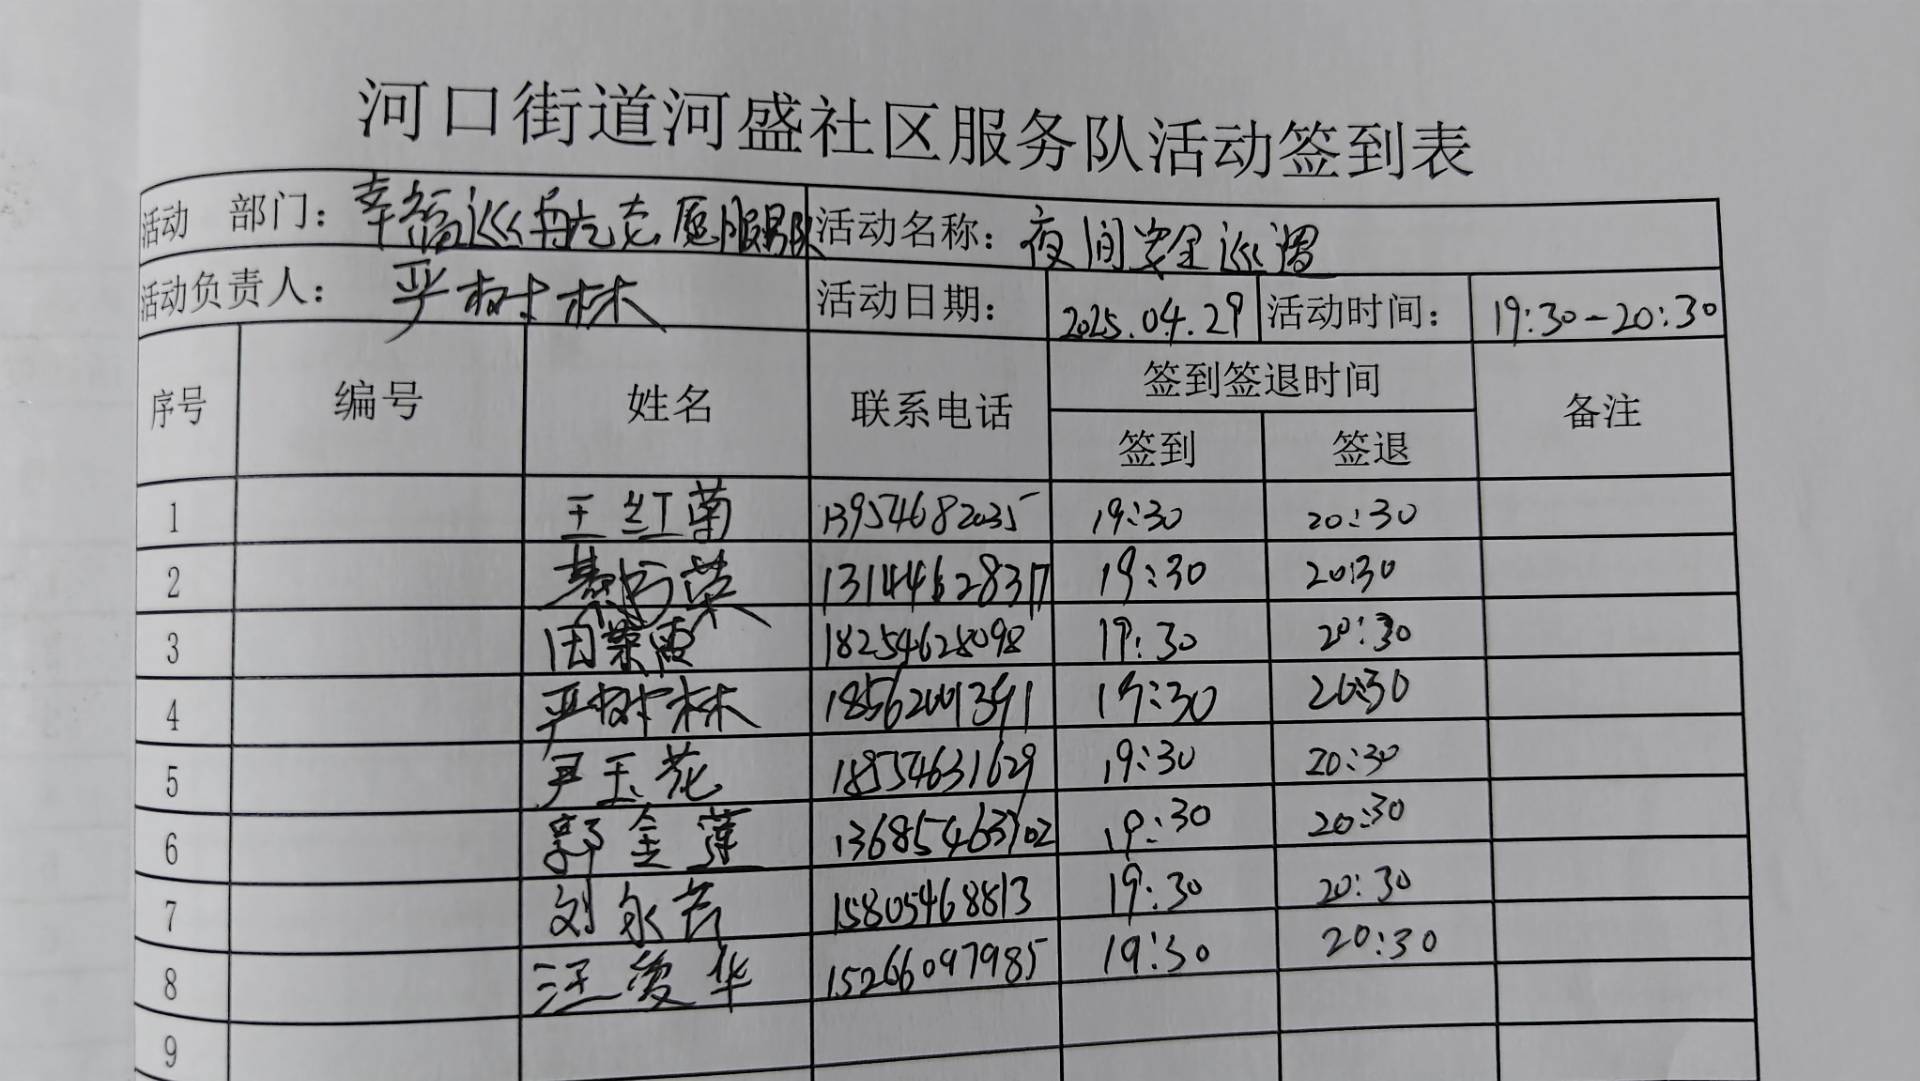 河口街道河盛社区服务队活动签到表
活动 部门: 幸福巡 志愿服务队 活动名称: 夜间安全巡逻
活动负责人: 严树林 活动日期: 2025.04.29 活动时间: 19:30-20:30
序号 编号 姓名 联系电话 签到签退时间 备注
签到 签退
1 王红菊 13954682035 19:30 20:30
2 荣 13144628317 19:30 20:30
3 田 霞 18254628098 19:30 20:30
4 严树林 19:30 20:30
5 尹玉花 18554631629 19:30 20:30
6 郭金莲 13685463702 19:30 20:30
7 刘永吉 15805468813 19:30 20:30
8 汪爱华 15266097985 19:30 20:30
9